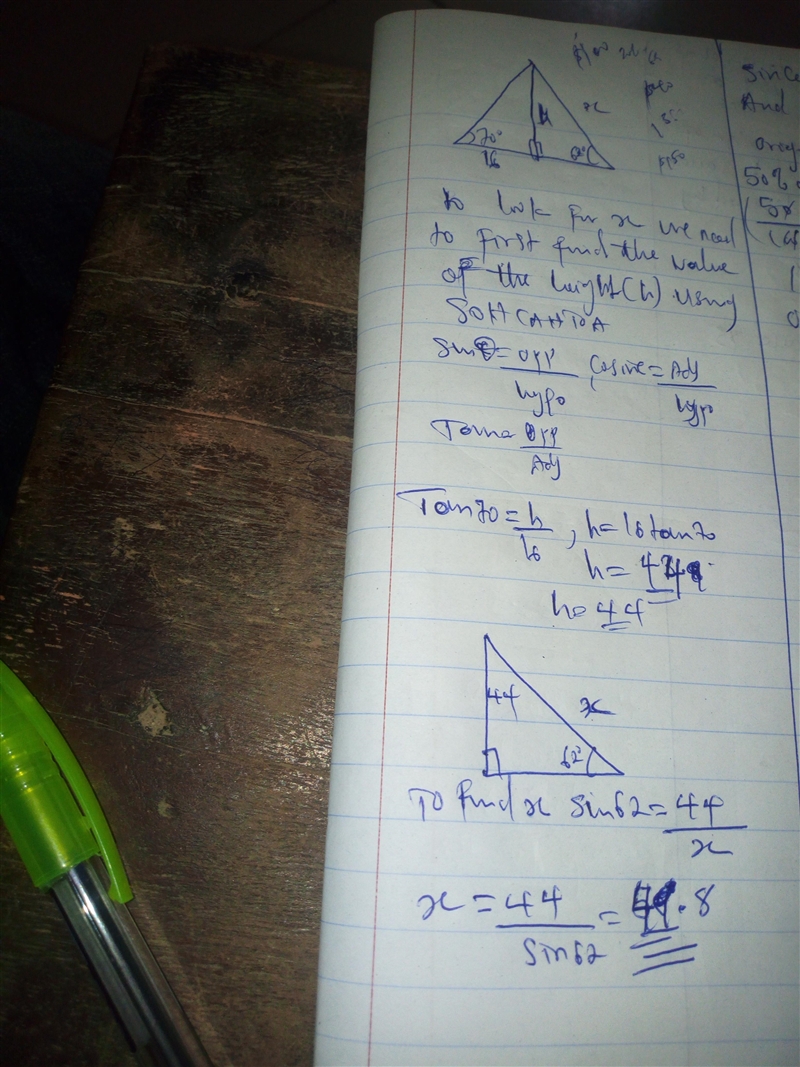 h
x
70°
16
to look for x we need
to first find the value
of the height(h) using
SOHCAHTOA
Sin = opp/hypo, Cosine = Adj/hypo
Tan = opp/Adj
Tan70 = h/16, h = 16tan70
h =
h = 44
44
x
62°
To find x sin62 = 44/x
x = 44/sin62 = .8
Since
And
50%